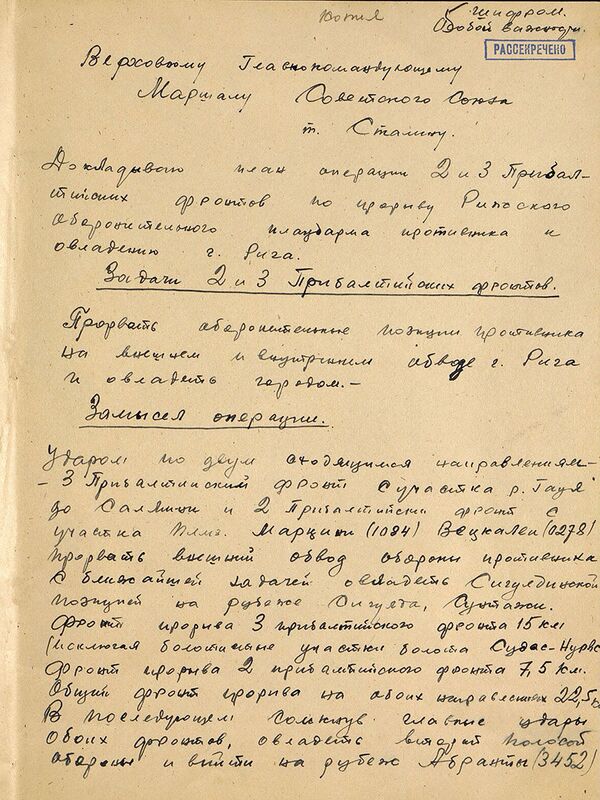 копия
шифром.
Особой важности.
РАССЕКРЕЧЕНО
Верховному Главнокомандующему
Маршалу Советского Союза
т. Сталину.
Докладываю план операции 2 и 3 Прибал-
тийских фронтов по прорыву Рижского
оборонительного плацдарма противника и
овладению г. Рига.
Задачи 2 и 3 Прибалтийских фронтов.
Прорвать оборонительные позиции противника
на внешнем и внутреннем обводе г. Рига
и овладеть городом.-
Замысел операции.
Ударом по двум сходящимся направлениям-
- 3 Прибалтийский фронт с участка р. Гауя
до Салмини и 2 Прибалтийский фронт с
участка Марцини (1084) Вецкалеи (0278)
прорвать внешний обвод обороны противника
с ближайшей задачей овладеть Сигулдинской
позицией на рубеже Сигулда, Сунтажи.
Фронт прорыва 3 прибалтийского фронта 15 км
(исключая болотистые участки болота Судас-Нурвс
Фронт прорыва 2 прибалтийского фронта 7,5 км.
Общий фронт прорыва на обоих направлениях 22,5 км
В последующем сомкнув главные удары
обоих фронтов, овладеть второй полосой
обороны и выйти на рубеж Абранты (3452)